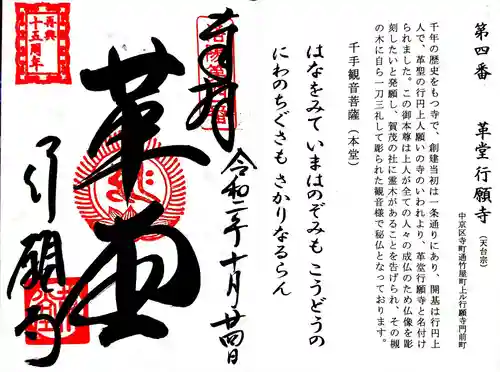 第四番　革堂行願寺（天台宗）
中京区寺町通竹屋町上ル行願寺門前町
千年の歴史をもつ寺で、創建当初は一条通りにあり、開基は行円上
人で、革聖の行円上人願いの寺のいわれより、革堂行願寺と名付け
られました。この御本尊は上人が全ての人々の成仏のため仏像を彫
刻したいと発願し、賀茂の社に霊木があることを告げられ、その槻
の木に自ら一刀三礼して彫られた観音様で秘仏となっております。
千手観音菩薩（本堂）
はなをみて いまはのぞみも こうどうの
にわのちぐさも さかりなるらん
奉拝
令和二年十月廿四日
革堂
行願寺
再興
十五周年